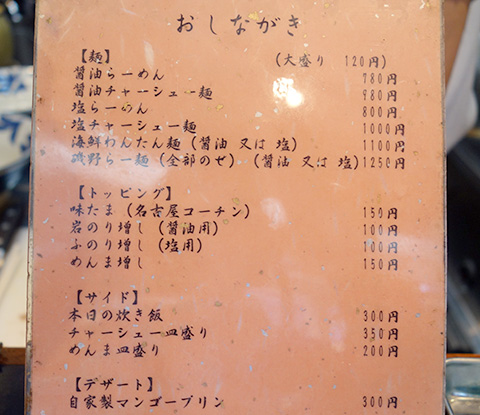 おしながき
【麺】 (大盛り 120円)
醤油らーめん 780円
醤油チャーシュー麺 980円
塩らーめん 800円
塩チャーシュー麺 1000円
海鮮わんたん麺(醤油 又は 塩) 1100円
磯野らー麺(全部のせ)(醤油 又は 塩)1250円
【トッピング】
味たま(名古屋コーチン) 150円
岩のり増し(醤油用) 100円
ふのり増し(塩用) 100円
めんま増し 150円
【サイド】
本日の炊き飯 300円
チャーシュー皿盛り 350円
めんま皿盛り 200円
【デザート】
自家製マンゴープリン 300円